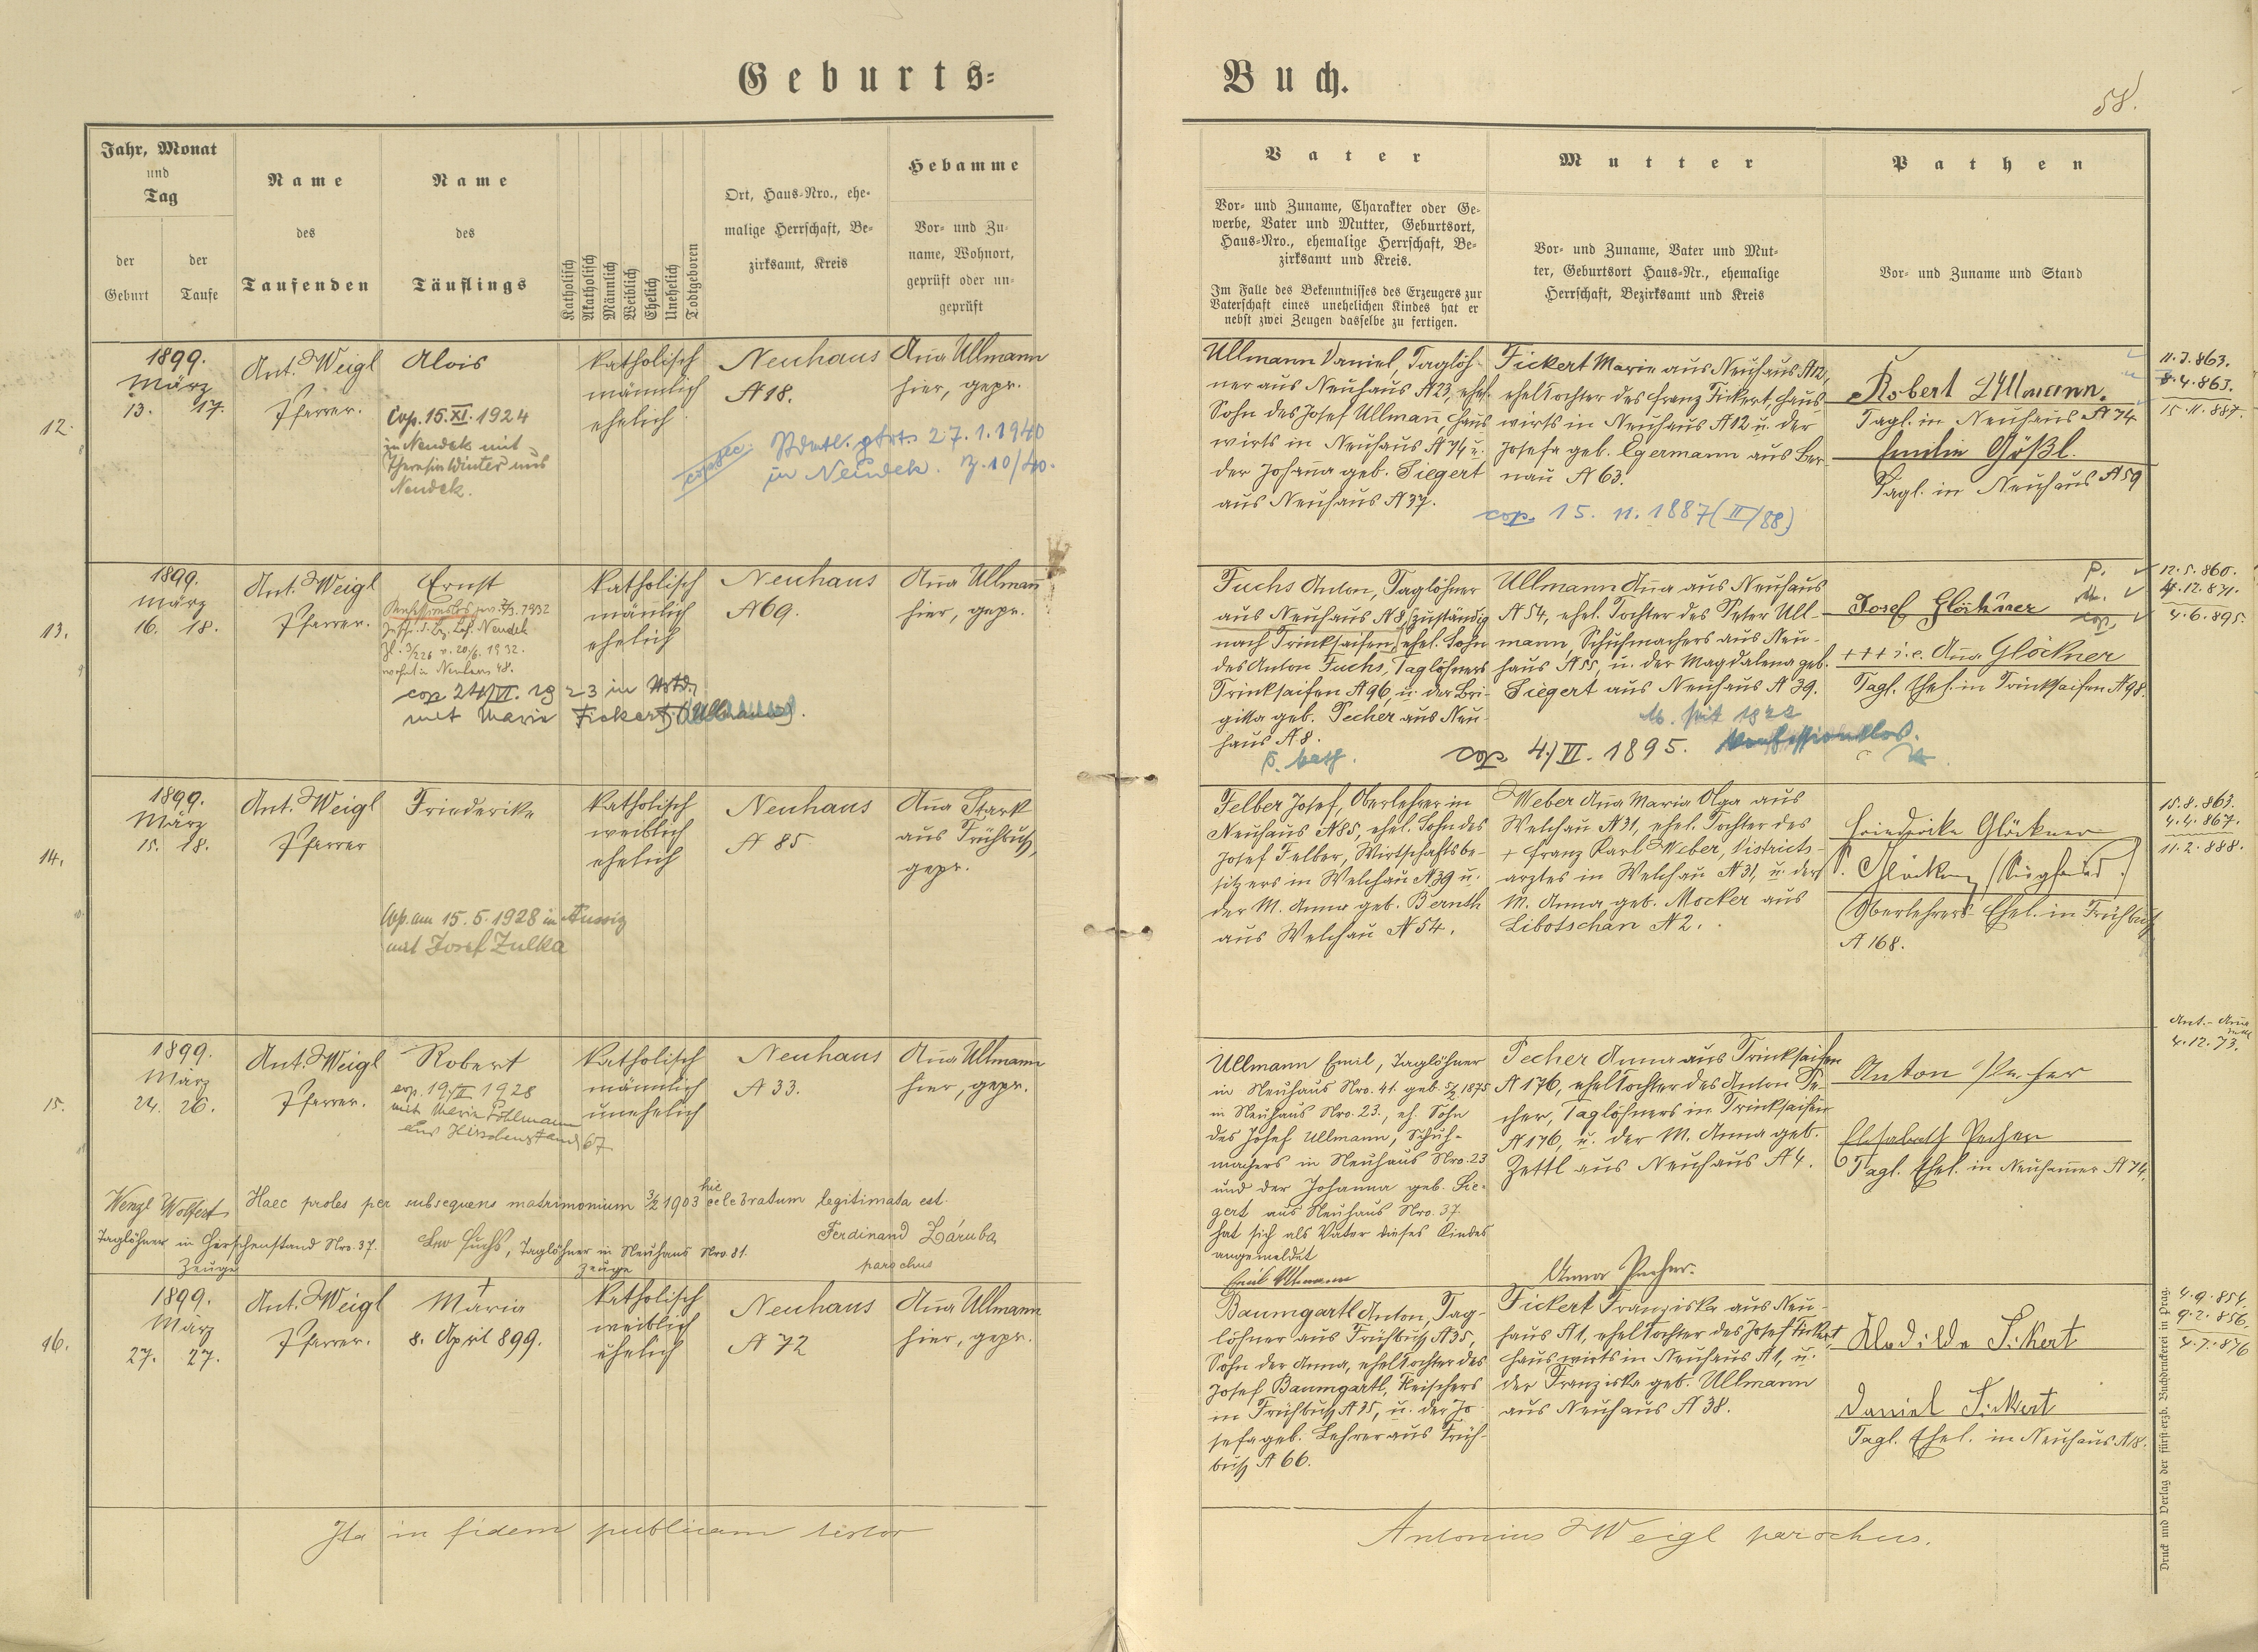 Geburts=
Buch.
58.
Jahr, Monat
und
Tag
der
Geburt
der
Taufe
Name
des
Taufenden
Name
des
Täuflings
Katholisch
Akatholisch
Männlich
Weiblich
Ehelich
Unehelich
Todtgeboren
Ort, Haus-Nro., ehe-
malige Herrschaft, Be-
zirksamt, Kreis
Hebamme
Vor- und Zu-
name, Wohnort,
geprüft oder un-
geprüft
Vater
Vor- und Zuname, Charakter oder Ge-
werbe, Vater und Mutter, Geburtsort,
Haus-Nro., ehemalige Herrschaft, Be-
zirksamt und Kreis.
Im Falle des Bekenntnisses des Erzeugers zur
Vaterschaft eines unehelichen Kindes hat er
nebst zwei Zeugen dasselbe zu fertigen.
Mutter
Vor- und Zuname, Vater und Mut-
ter, Geburtsort Haus-Nr., ehemalige
Herrschaft, Bezirksamt und Kreis
Pathen
Vor- und Zuname und Stand
12.
1899.
März
13. 17.
Ant. Weigl
Pfarrer.
Alois
Cop. 15.XI.1924
in Neudek mit
Theresia Winter aus
Neudek.
katholisch
männlich
ehelich
Neuhaus
N 18.
Anna Ullmann
hier, gepr.
27.1.1940
in Neudek. Z.10/40.
Ullmann Daniel, Taglöh-
ner aus Neuhaus N 23, ehel.
Sohn des Josef Ullmann, Haus-
wirts in Neuhaus N 74 u.
der Johanna geb. Siegert
aus Neuhaus N 37.
Fickert Marie aus Neuhaus N 12,
ehel. Tochter des Franz Fickert, Haus-
wirts in Neuhaus N 12 u. der
Josefa geb. Egermann aus Ber-
nau N 63.
cop. 15. 11. 1887 (II/88)
Robert Ullmann.
Tagl. in Neuhaus N 74
Emilie Gößl.
Tagl. in Neuhaus N 59
11.3.863.
8.4.865.
15.11.887.
13.
1899.
März
16. 18.
Ant. Weigl
Pfarrer.
Ernst
wohnt in Neuhaus 48.
cop 24/VI. 1923 in
mit Marie Fickert (Ullmann).
katholisch
männlich
ehelich
Neuhaus
N 69.
Anna Ullmann
hier, gepr.
Fuchs Anton, Taglöhner
aus Neuhaus N 8, (zuständig
nach Trinksaifen) ehel. Sohn
des Anton Fuchs, Taglöhners
Trinksaifen N 96, u. der Bri-
gitta geb. Pecher aus Neu-
haus N 8.
Ullmann Anna aus Neuhaus
N 54, ehel. Tochter des Peter Ull-
mann, Schuhmachers aus Neu-
haus N 55, u. der Magdalena geb.
Siegert aus Neuhaus N 39.
M. seit 1922
konfessionslos.
cop 4./VI. 1895.
Josef Glöckner
+++ i.e. Anna Glöckner
Tagl. Ehel. in Trinksaifen N 98.
P.
M.
cop.
12.5.860.
4.12.871.
4.6.895.
14.
1899.
März
15. 18.
Ant. Weigl
Pfarrer
Friederike
Cop. am 15.5.1928 in Aussig
mit Josef Zulka
katholisch
weiblich
ehelich
Neuhaus
N 85
Anna Stark
aus Frühbuß,
gepr.
Felber Josef, Oberlehrer in
Neuhaus N 85, ehel. Sohn des
Josef Felber, Wirtschaftsbe-
sitzers in Welchau N 39 u.
der M. Anna geb. Bernth
aus Welchau N 54.
Weber Anna Maria Olga aus
Welchau N 31, ehel. Tochter des
+ Franz Karl Weber, Districts-
arztes in Welchau N 31, u. der
M. Anna, geb. Mocker aus
Libotschan N 2.
Friedericke Glöckner
Oberlehrers Ehel. in Frühbuß
N 168.
15.8.863.
4.4.867.
11.2.888.
15.
1899.
März
24. 26.
Ant. Weigl
Pfarrer.
Robert
cop. 19/II 1928
mit Maria
aus Hirschenstand 67
katholisch
männlich
unehelich
Neuhaus
N 33.
Anna Ullmann
hier, gepr.
Ullmann Emil, Taglöhner
in Neuhaus Nro. 41. geb. 1875
in Neuhaus Nro. 23., eh. Sohn
des Josef Ullmann, Schuh-
machers in Neuhaus Nro. 23
und der Johanna geb. Sie-
gert aus Neuhaus Nro. 37
hat sich als Vater dieses Kindes
angemeldet
Emil Ullmann
Pecher Anna aus Trinksaifen
N 176, ehel. Tochter des Anton Pe-
cher, Taglöhners in Trinksaifen
N 176, u. der M. Anna geb.
Zettl aus Neuhaus N 4.
Anna Pecher.
Anton Pecher
Elisabeth Pecher
Tagl. Ehel. in Neuhammer N 74.
4.12.73.
Haec proles per subsequens matrimonium 3/2 1903 hic celebratum legitimata est.
Ferdinand Záruba
parochus
Wenzl Wolfert
Taglöhner in Hirschenstand Nro. 37.
Zeuge
Leo Fuchs, Taglöhner in Neuhaus Nro. 81.
Zeuge
16.
1899.
März
27. 27.
Ant. Weigl
Pfarrer.
+
Maria
8. April 899.
katholisch
weiblich
ehelich
Neuhaus
N 72
Anna Ullmann
hier, gepr.
Baumgartl Anton, Tag-
löhner aus Frühbuß N 35,
Sohn der Anna, ehel. Tochter des
Josef Baumgartl, Fleischers
in Frühbuß N 35, u. der Jo-
sefa geb. Lehrer aus Früh-
buß N 66.
Fickert Franziska aus Neu-
haus N 1, ehel. Tochter des Josef Fickert,
Hauswirts in Neuhaus N 1, u.
der Franziska geb. Ullmann
aus Neuhaus N 38.
Klodilde Fickert
Daniel Fickert
Tagl. Ehel. in Neuhaus N 8.
4.9.854.
9.2.856.
4.7.876
Ita in fidem publicam testor
Antonius Weigl parochus.
Druck und Verlag der fürst-erzb. Buchdruckerei in Prag.